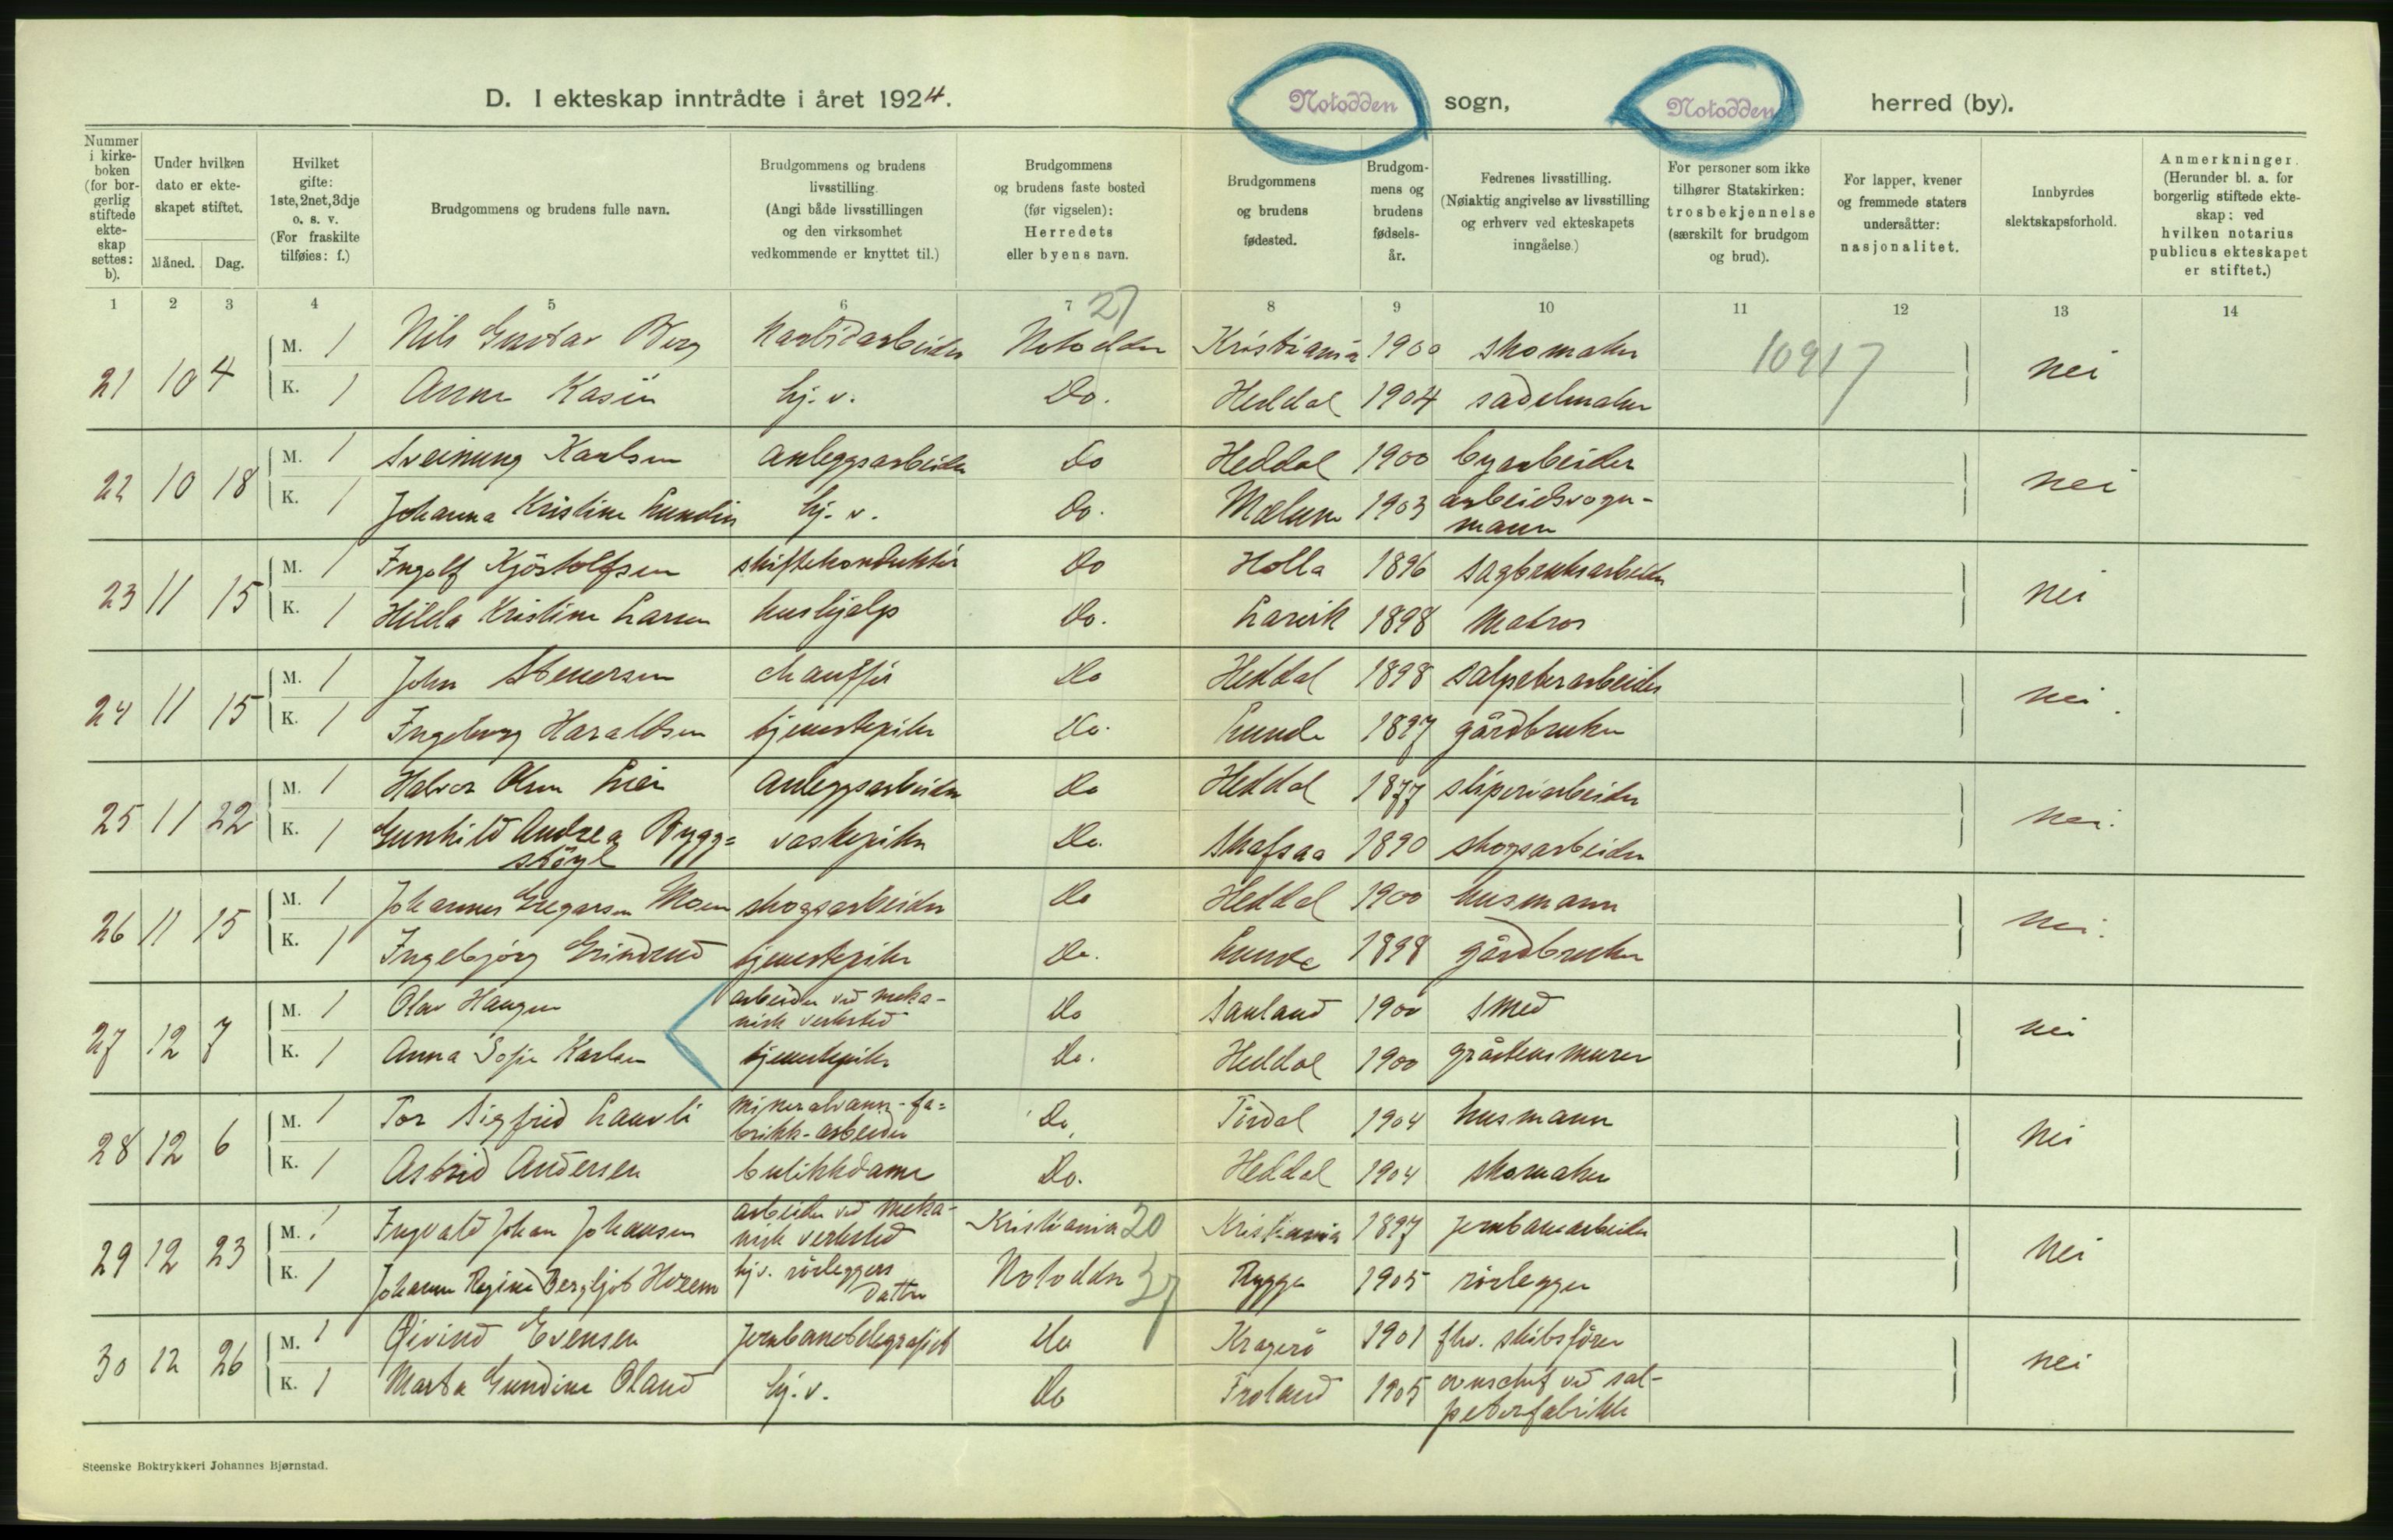 D. I ekteskap inntrådte i året 1924.
Notodden sogn, Notodden herred (by).
Nummer i kirke-boken (for bor-gerlig stiftede ekte-skap settes: b).
Under hvilken dato er ekte-skapet stiftet.
Måned. Dag.
Hvilket gifte: 1ste, 2net, 3dje o. s. v. (For fraskilte tilføies: f.)
Brudgommens og brudens fulle navn.
Brudgommens og brudens livsstilling. (Angi både livsstillingen og den virksomhet vedkommende er knyttet til.)
Brudgommens og brudens faste bosted (før vigselen): Herredets eller byens navn.
Brudgommens og brudens fødested.
Brudgom-mens og brudens fødsels-år.
Fedrenes livsstilling. (Nøiaktig angivelse av livsstilling og erhverv ved ekteskapets inngåelse.)
For personer som ikke tilhører Statskirken: trosbekjennelse (særskilt for brudgom og brud).
For lapper, kvener og fremmede staters undersåtter: nasjonalitet.
Innbyrdes slektskapsforhold.
Anmerkninger. (Herunder bl. a. for borgerlig stiftede ekte-skap: ved hvilken notarius publicus ekteskapet er stiftet.)
1 2 3 4 5 6 7 8 9 10 11 12 13 14
27
21 10 4 M. 1 Nils Gustav Berg karbidarbeider Notodden Kristiania 1900 skomaker 10917 nei
K. 1 Anne Kasin hj. v. Do. Heddal 1904 sadelmaker
22 10 18 M. 1 Sveinung Karlsen anleggsarbeider Do Heddal 1900 byarbeider nei
K. 1 Johanna Kristine Lundin hj. v. Do. Mælum 1903 arbeidsvogn-
mann
23 11 15 M. 1 Ingolf Kjöstolfsen skiftekonduktör Do Holla 1896 sagbruksarbeider nei
K. 1 Hilda Kristine Larsen hushjelp Do. Larvik 1898 Matros
24 11 15 M. 1 John Stenersen chaufför Do Heddal 1898 salpeterarbeider nei.
K. 1 Ingeborg Haraldsen tjenestepike Do. Lunde 1897 gårdbruker
25 11 22 M. 1 Halvor Olsen Lien Anleggsarbeider Do Heddal 1877 sliperiarbeider nei.
K. 1 Gunhild Andrea Bygg=
stöyl vaskepike Do. Skafsaa 1890 skogsarbeider
26 11 15 M. 1 Johannes Gregarsen Moen skogsarbeider Do Heddal 1900 husmann nei.
K. 1 Ingebjörg Grindrud tjenestepike Do. Lunde 1898 gårdbruker
27 12 7 M. 1 Olav Haugen arbeider ved meka-
nisk verksted Do Sauland 1900 smed nei
K. 1 Anna Sofie Karlsen tjenestepike Do. Heddal 1900 gråstensmurer
28 12 6 M. 1 Tor Sigfrid Lauvli mineralvann-fa=
brikk-arbeider Do. Tördal 1904 husmann nei
K. 1 Astrid Andersen butikkdame Do. Heddal 1904 skomaker
29 12 23 M. 1 Ingvald Johan Johansen arbeider ved meka-
nisk verksted Kristiania 20 Kristiania 1897 jernbanearbeider nei
K. 1 Johanne Regine Bergljot Horem hj. v. rörleggers
datter Notodden 27 Rygge 1905 rörlegger
30 12 26 M. 1 Øivind Evensen jernbanetelegrafist Do Kragerö 1901 fhv. skibsförer nei
K. 1 Marta Gundine Oland hj. v. Do Froland 1905 ovnschef ved sal-
peterfabrikk
Steenske Boktrykkeri Johannes Bjørnstad.